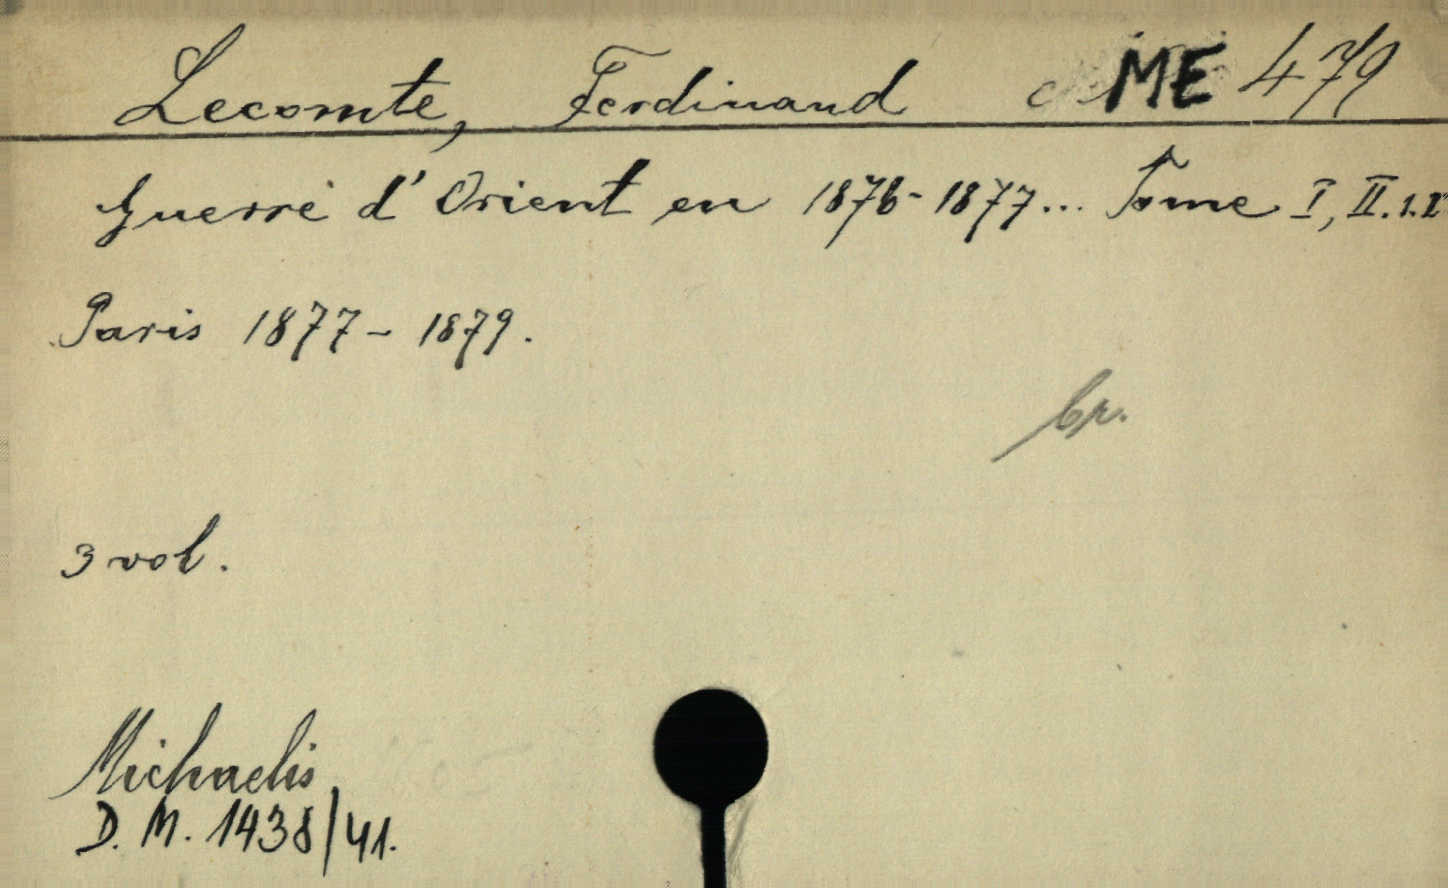 Lecomte, Ferdinand ME 479
Guerre d'Orient en 1876-1877... Tome I, II.1.2
Paris 1877-1879.
br.
3 vol.
Michaelis
D. M. 1438/41.